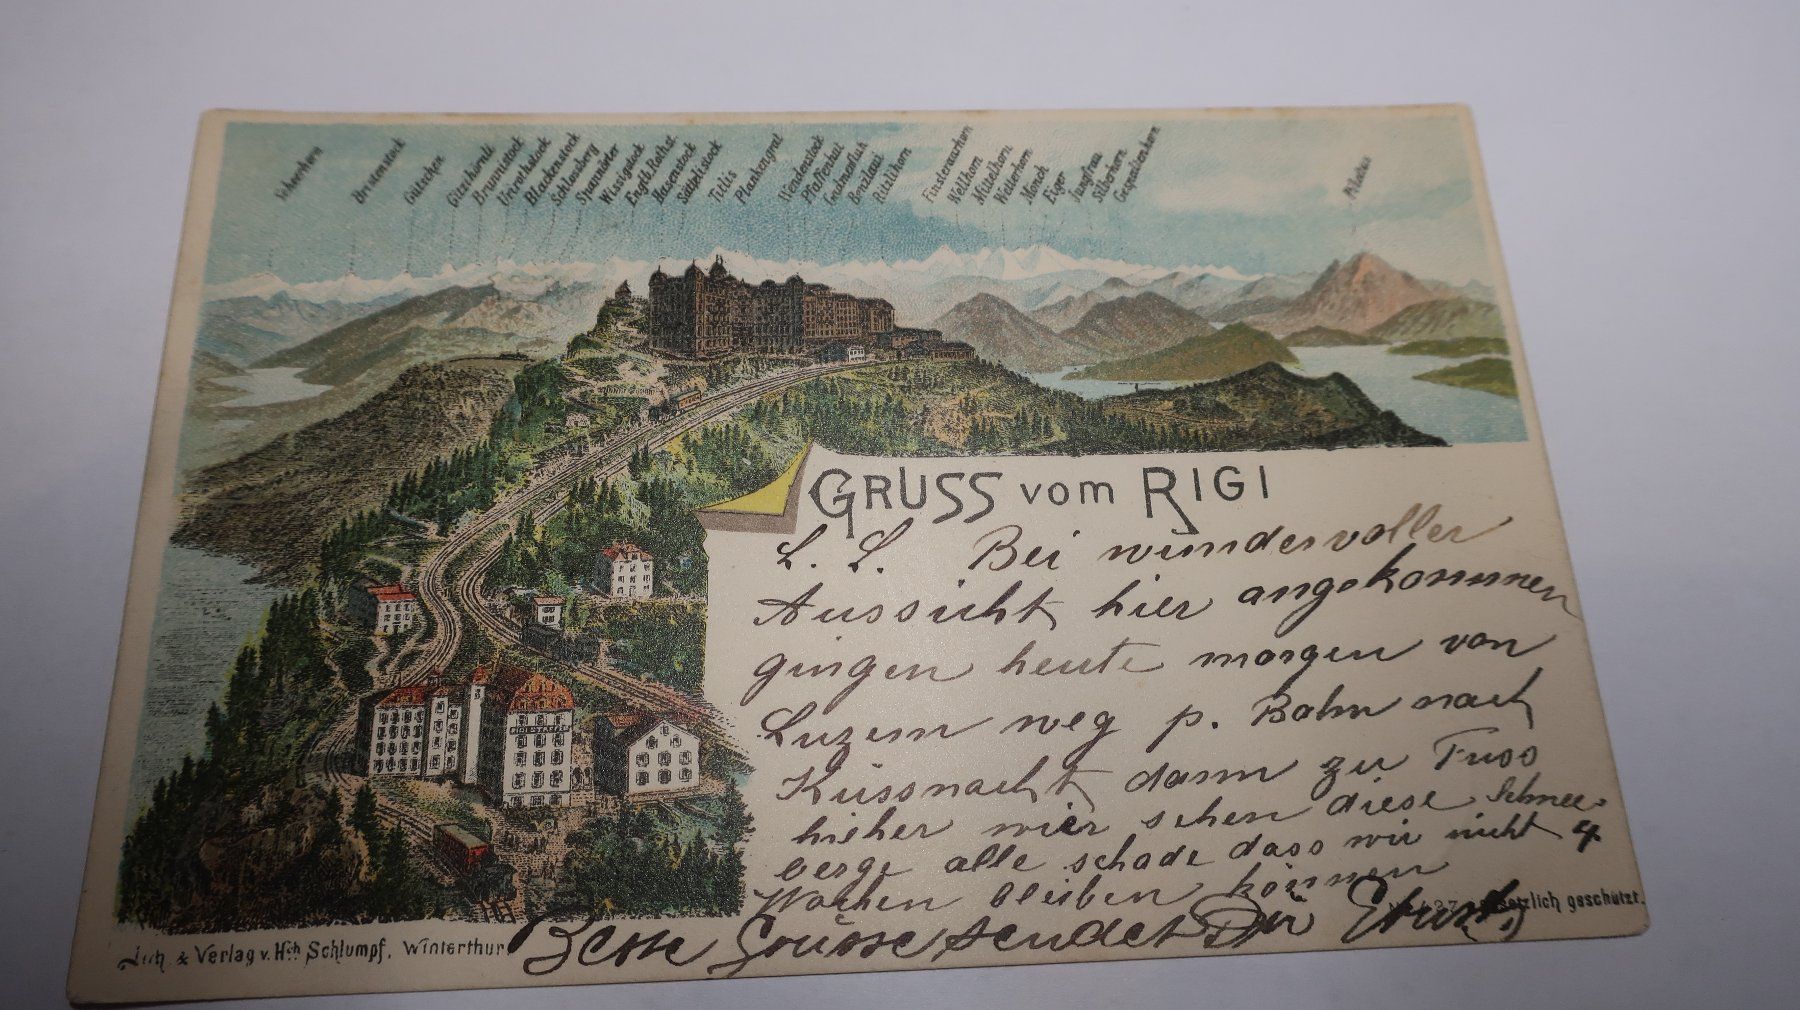 Scherhorn
Bristenstock
Gütschen
Gitzihörnli
Brunnistock
Urirothstock
Blackenstock
Schlossberg
Spannörter
Wissigstock
Englb. Rothst.
Hasenstock
Sättplistock
Titlis
Plankengrat
Wendenstock
Pfaffenhut
Gadmerfluh
Benzlaui
Ritzlihorn
Finsteraarhorn
Wellhorn
Mittelhorn
Wetterhorn
Mönch
Eiger
Jungfrau
Silberhorn
Gspaltenhorn
Pilatus
GRUSS vom RIGI
L. L. Bei wundervoller
Aussicht hier angekommen
gingen heute morgen von
Luzern weg p. Bahn nach
Küssnacht dann zu Fuss
hieher wier sehen diese Schnee-
berge alle schade dass wir nicht 4
Wochen bleiben können
Beste Grüsse sendet Dir
RIGI STAFFEL
Lith. & Verlag v. Hch. Schlumpf, Winterthur
Gesetzlich geschützt.